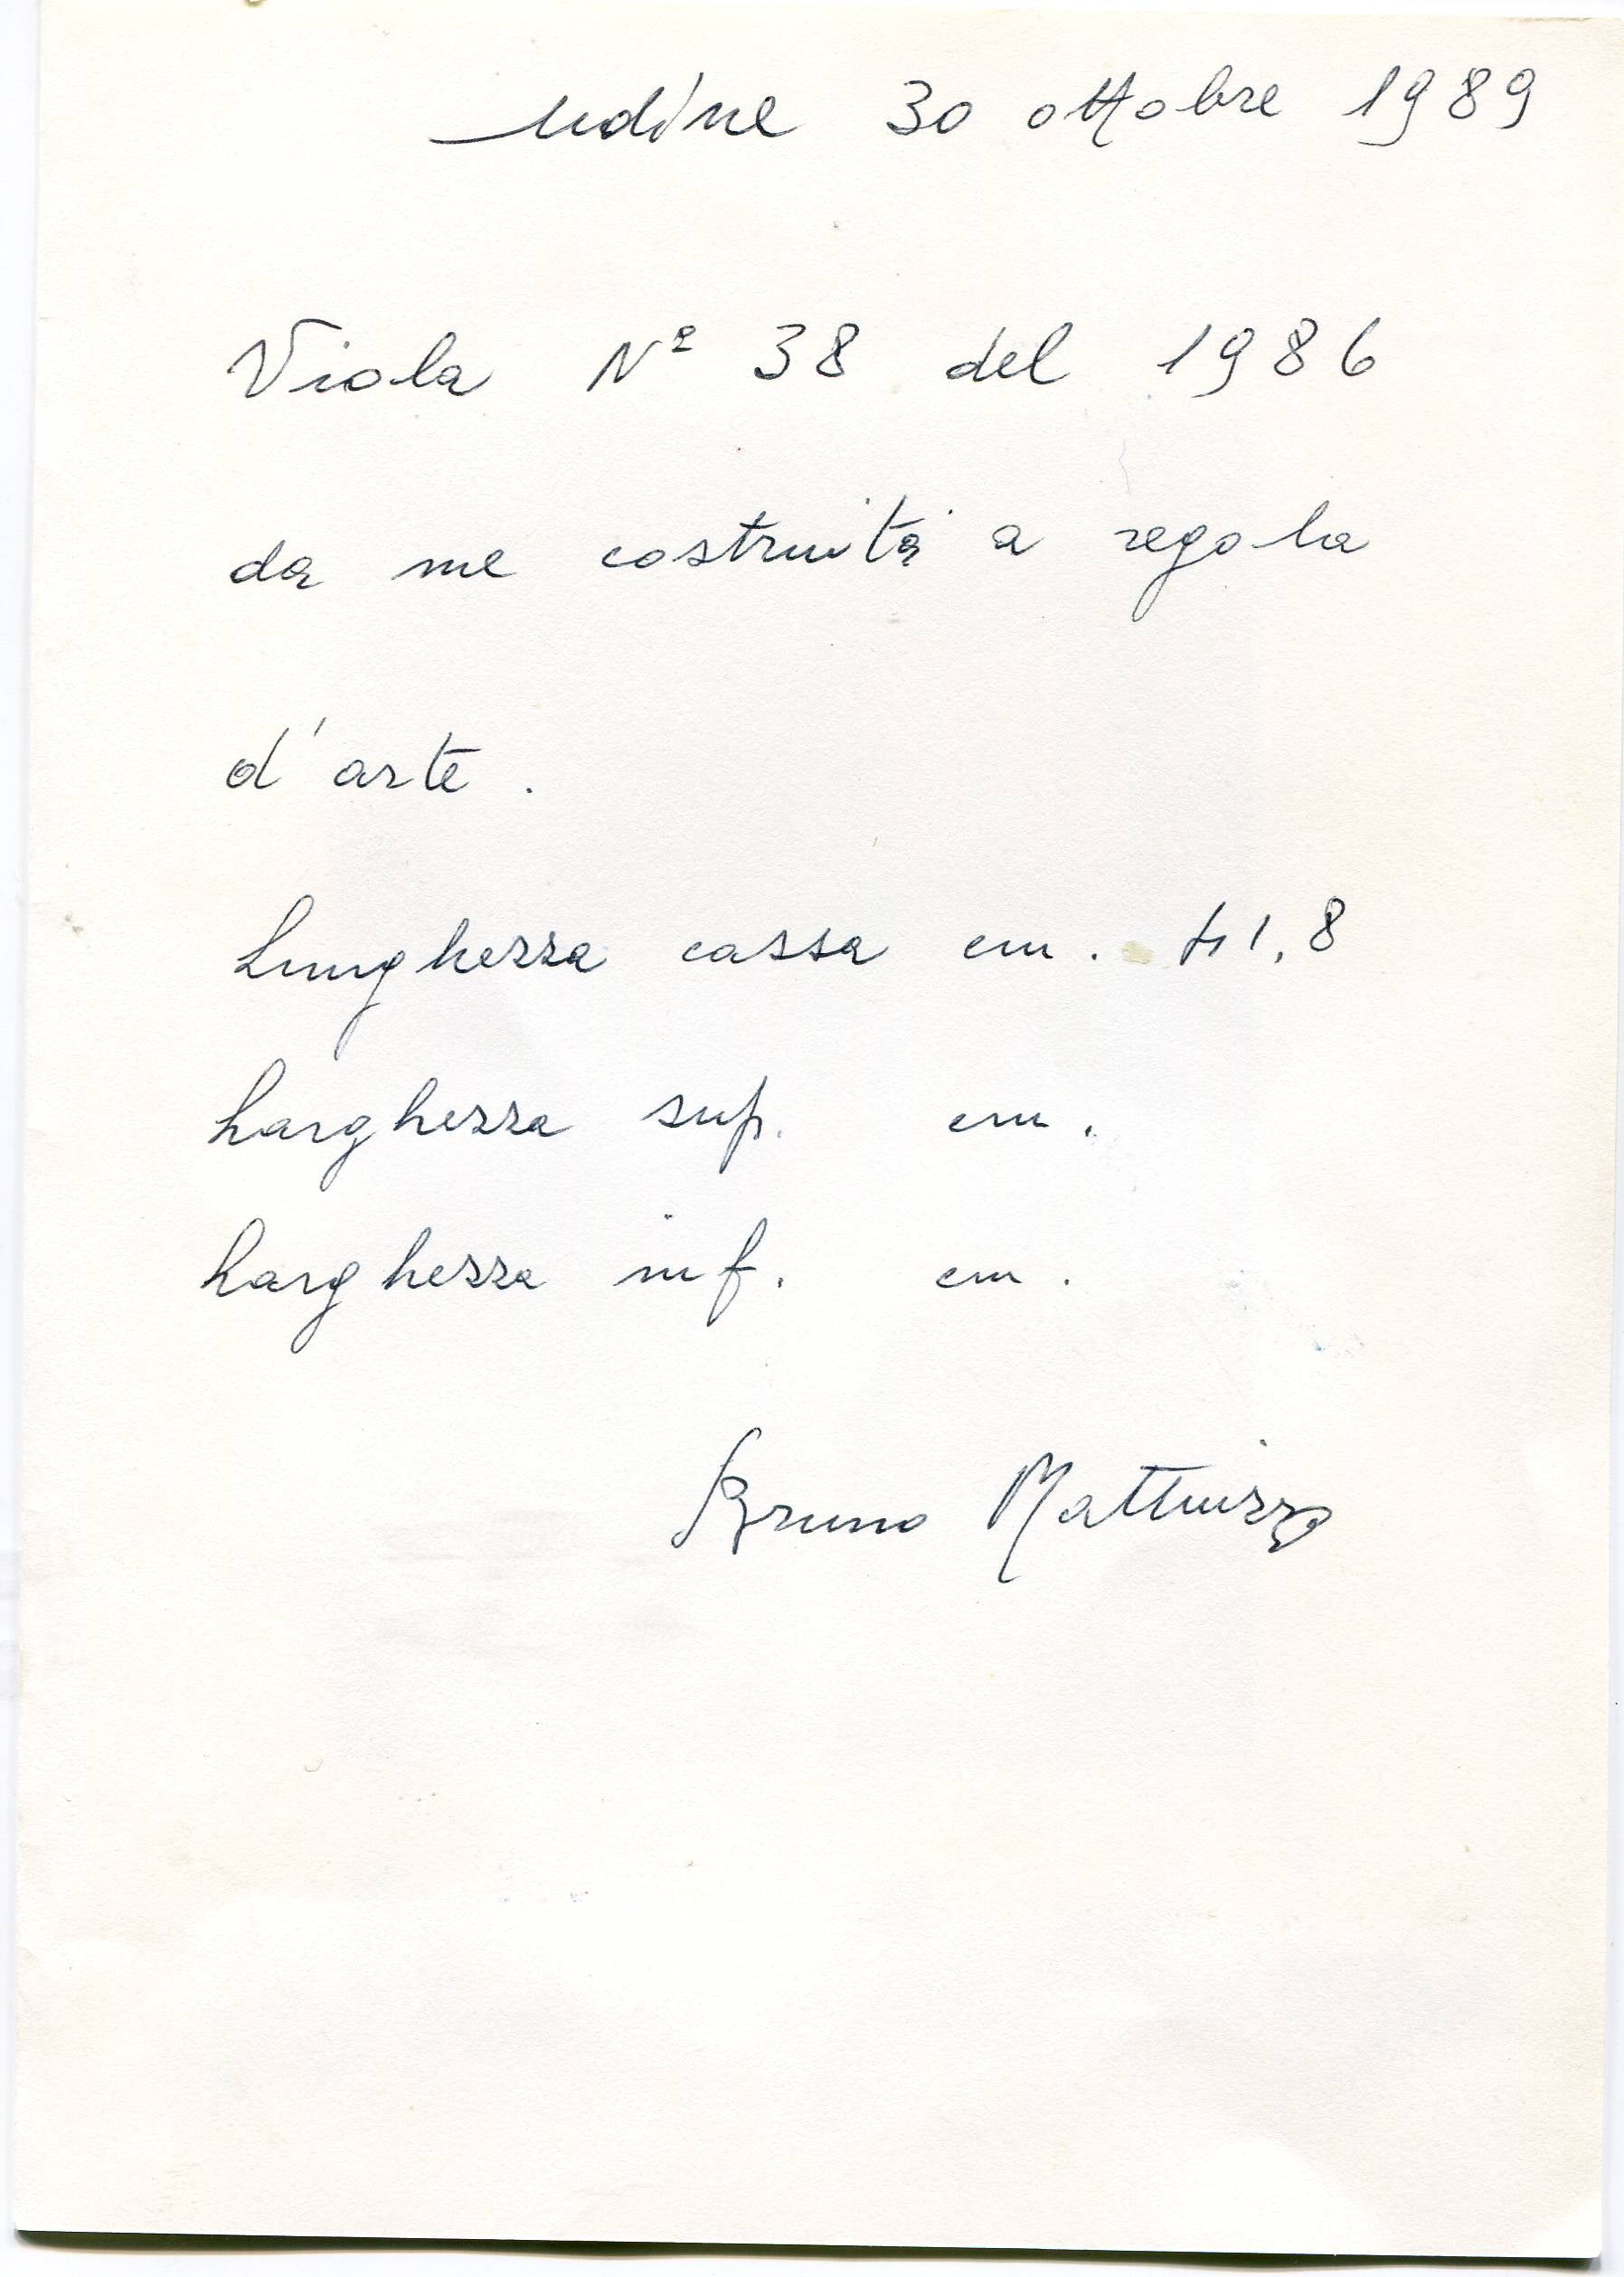 Udine 30 ottobre 1989
Viola Nº 38 del 1986
da me costruita a regola
d'arte.
Lunghezza cassa cm. 41,8
Larghezza sup. cm.
Larghezza inf. cm.
Bruno Mattiuzzo